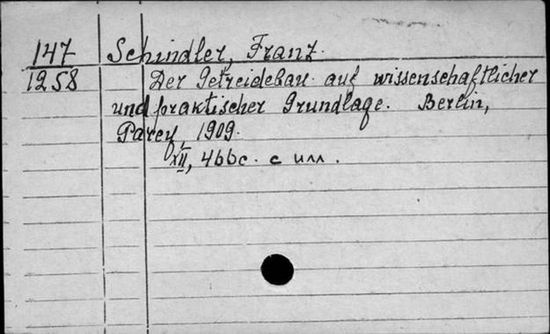 147 Schindler, Franz.
1258 Der Getreidebau auf wissenschaftlicher
und praktischer Grundlage. Berlin,
Parey 1909.
XII, 466с. с илл.